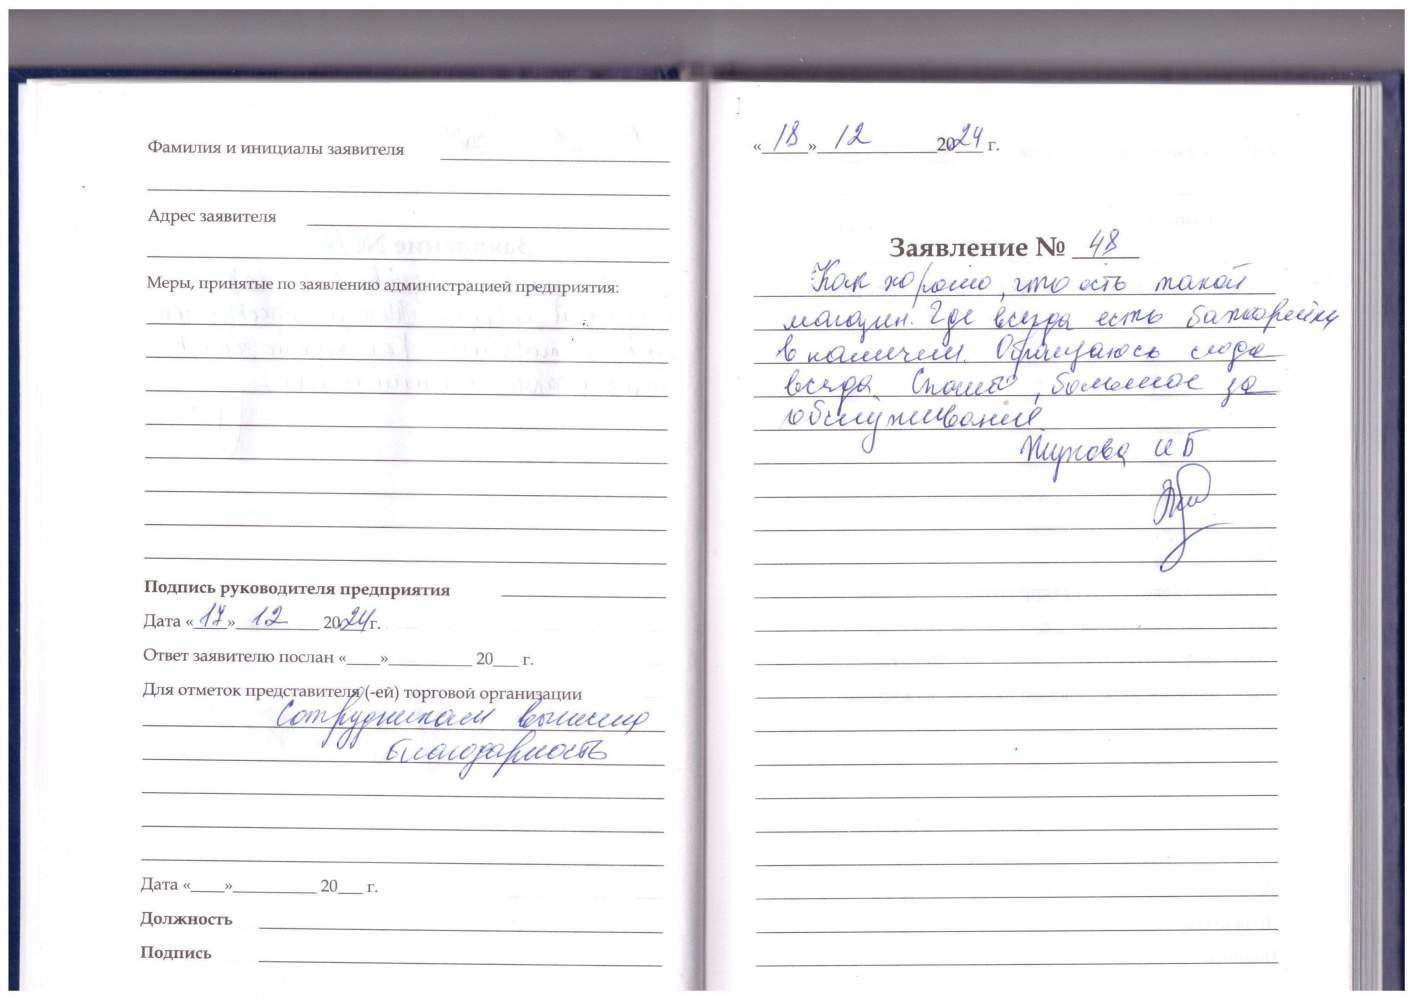 Фамилия и инициалы заявителя
Адрес заявителя
Меры, принятые по заявлению администрацией предприятия:
Подпись руководителя предприятия
Дата «17» 12 2024г.
Ответ заявителю послан «____»__________ 20___ г.
Для отметок представителя (-ей) торговой организации
Сотрудникам вынесена
благодарность
Дата «____»__________ 20___ г.
Должность
Подпись
«18» 12 2024 г.
Заявление № 48
Как хорошо, что есть такой
магазин. Где всегда есть батарейки
в наличии. Обращаюсь сюда
всегда. Спасибо, большое за
обслуживание
И Б